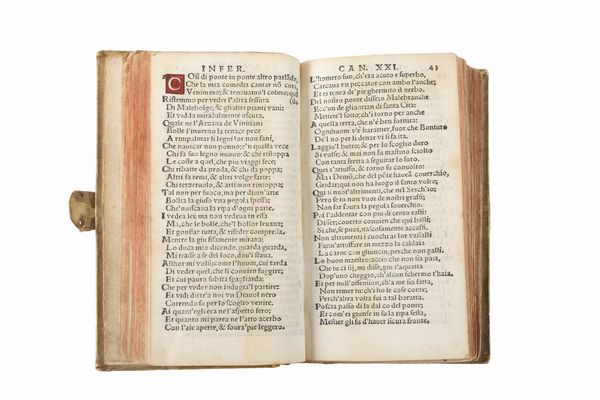 INFER.
COsi di ponte in ponte altro parlãdo,
Che la mia comedia cantar nõ cura,
Venimmo; & tenavamo'l colmo; quãdo
Ristemmo per veder l'altra fessura
Di Malebolge, & glialtri pianti vani:
Et vidila mirabilmente oscura.
Quale ne l'Arzana de Vinitiani
Bolle l'inverno la tenace pece
A rimpalmar li legni lor non sani,
Che navicar non ponno; e'n quella vece
Chi fa suo legno nuovo; & chi ristoppa
Le coste a quel, che piu viaggi fece;
Chi ribatte da proda, & chi da poppa;
Altri fa remi, & altri volge sarte;
Chi terzeruolo, & artimon rintoppa;
Tal non per fuoco, ma per divin'arte
Bollia la giuso vna pegola spessa;
Che'nuiscaua la ripa d'ogni parte.
I vedea lei; ma non vedeua in essa
Ma, che le bolle, che'l bollor leuaua;
Et gonfiar tutta, & risseder compressa.
Mentre la giu fisamente miraua;
Lo duca mio dicendo, guarda guarda,
Mi trasse a se del loco, dou'i staua.
Allhor mi volsi, come l'huom, cui tarda
Di veder quel, che li conuien fuggire;
Et cui paura subita sgagliarda;
Che per veder non indugia'l partire:
Et vidi dietr'a noi vn Diauol nero
Correndo su per lo scoglio venire.
Ai quant'egli era ne l'aspetto fero;
Et quanto mi parea ne l'atto acerbo
Con l'ale apette, & soura'pie leggero.
CAN. XXI. 43
L'homero suo, ch'era acuto e superbo,
Carcaua vn peccator con ambo l'anche;
Et ei tenea de'pie ghermito il nerbo.
Del nostro ponte disse, o Malebranche
Ecc'vn de gli antian di santa Cita:
Mettetel sotto; ch'i torno per anche
A quella terra, che n'è ben fornita:
Ognihuom v'è barattier, fuor che Bonturo
De'l no per li denar vi si fa ita.
Laggiu'l butto; & per lo scoglio duro
Si volse; & mai non fu mastino sciolto
Con tanta fretta a seguitar lo furo.
Quei s'attuffo, & torno su conuolto:
Ma i Demon, che del põte haueã couerchio,
Gridar; qui non ha luogo il santo volto;
Qui si nuota altrimenti, che nel Serchio;
Pero se tu non vuoi de nostri graffi;
Non far soura la pegola souerchio.
Poi l'addentar con piu di cento raffi:
Disser, couerto conuien che qui balli;
Si che, se puoi, nascosamente accaffi.
Non altrimenti i cuochi a lor vassalli
Fann'attuffare in mezzo la caldaia
La carne con gliuncin, perche non galli.
Lo buon maestro; accio che non si paia,
Che tu ci sij, mi disse, giu t'aquatta
Dop'vno scheggio, ch'alcun schermo t'haia.
Et per null'offension, ch'a me sia fatta,
Non temer tu: ch'i ho le cose conte;
Perch'altra volta fui a tal baratta.
Poscia passo di la dal co del ponte;
Et com'ei giunse in su la ripa sesta,
Mestier gli fu d'hauer sicura fronte.